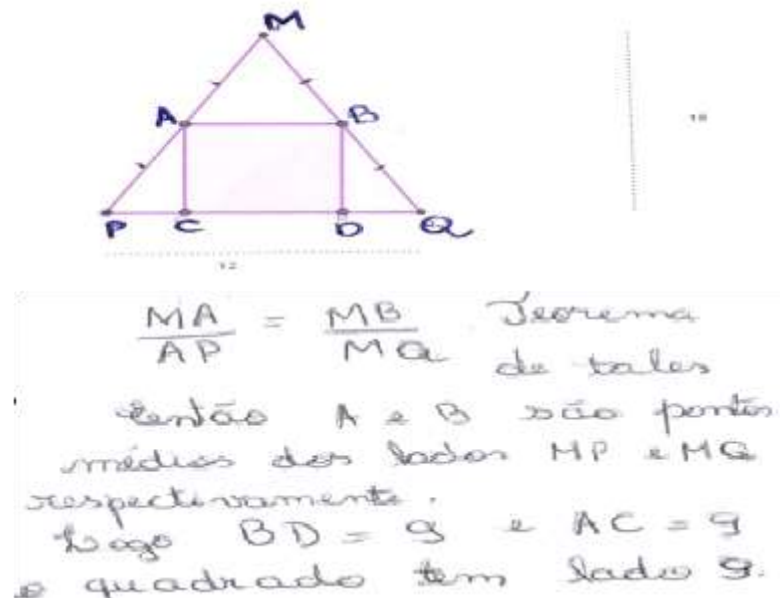 M
A B
18
P C D Q
12
MA/AP = MB/MQ Teorema
de tales
então A e B são pontos
médios dos lados MP e MQ
respectivamente.
Logo BD = 9 e AC = 9
o quadrado tem lado 9.